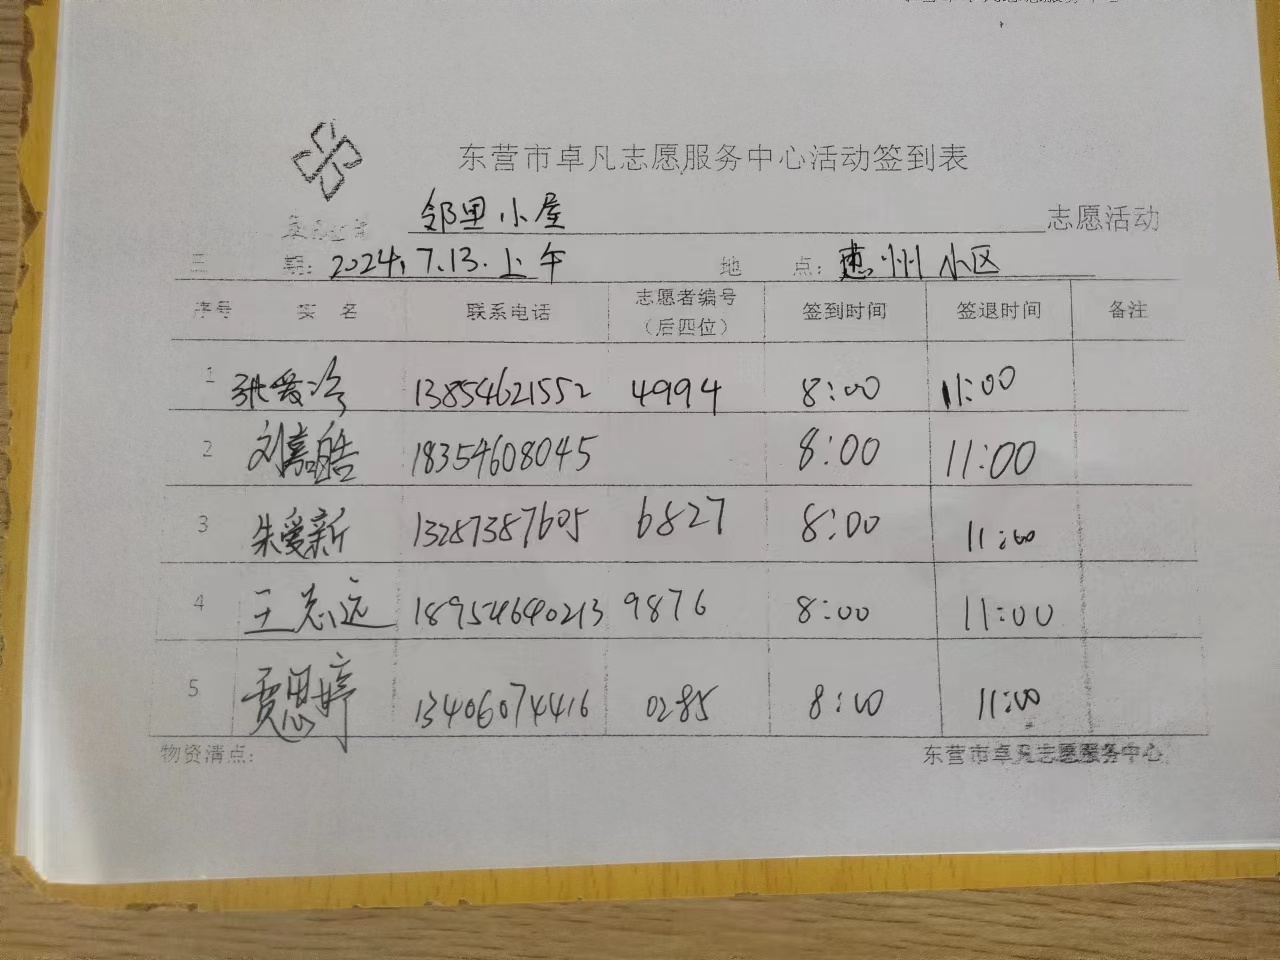 东营市卓凡志愿服务中心活动签到表
邻里小屋 志愿活动
期: 2024.7.13.上午 地 点: 惠州小区
序号 名 联系电话 志愿者编号(后四位) 签到时间 签退时间 备注
1 张爱 13854621552 4994 8:00 11:00
2 刘嘉皓 18354608045 8:00 11:00
3 朱爱新 13287387605 6827 8:00 11:00
4 王志远 18954640213 9876 8:00 11:00
5 贾思婷 13406074416 0285 8:00 11:00
物资清点:
东营市卓凡志愿服务中心